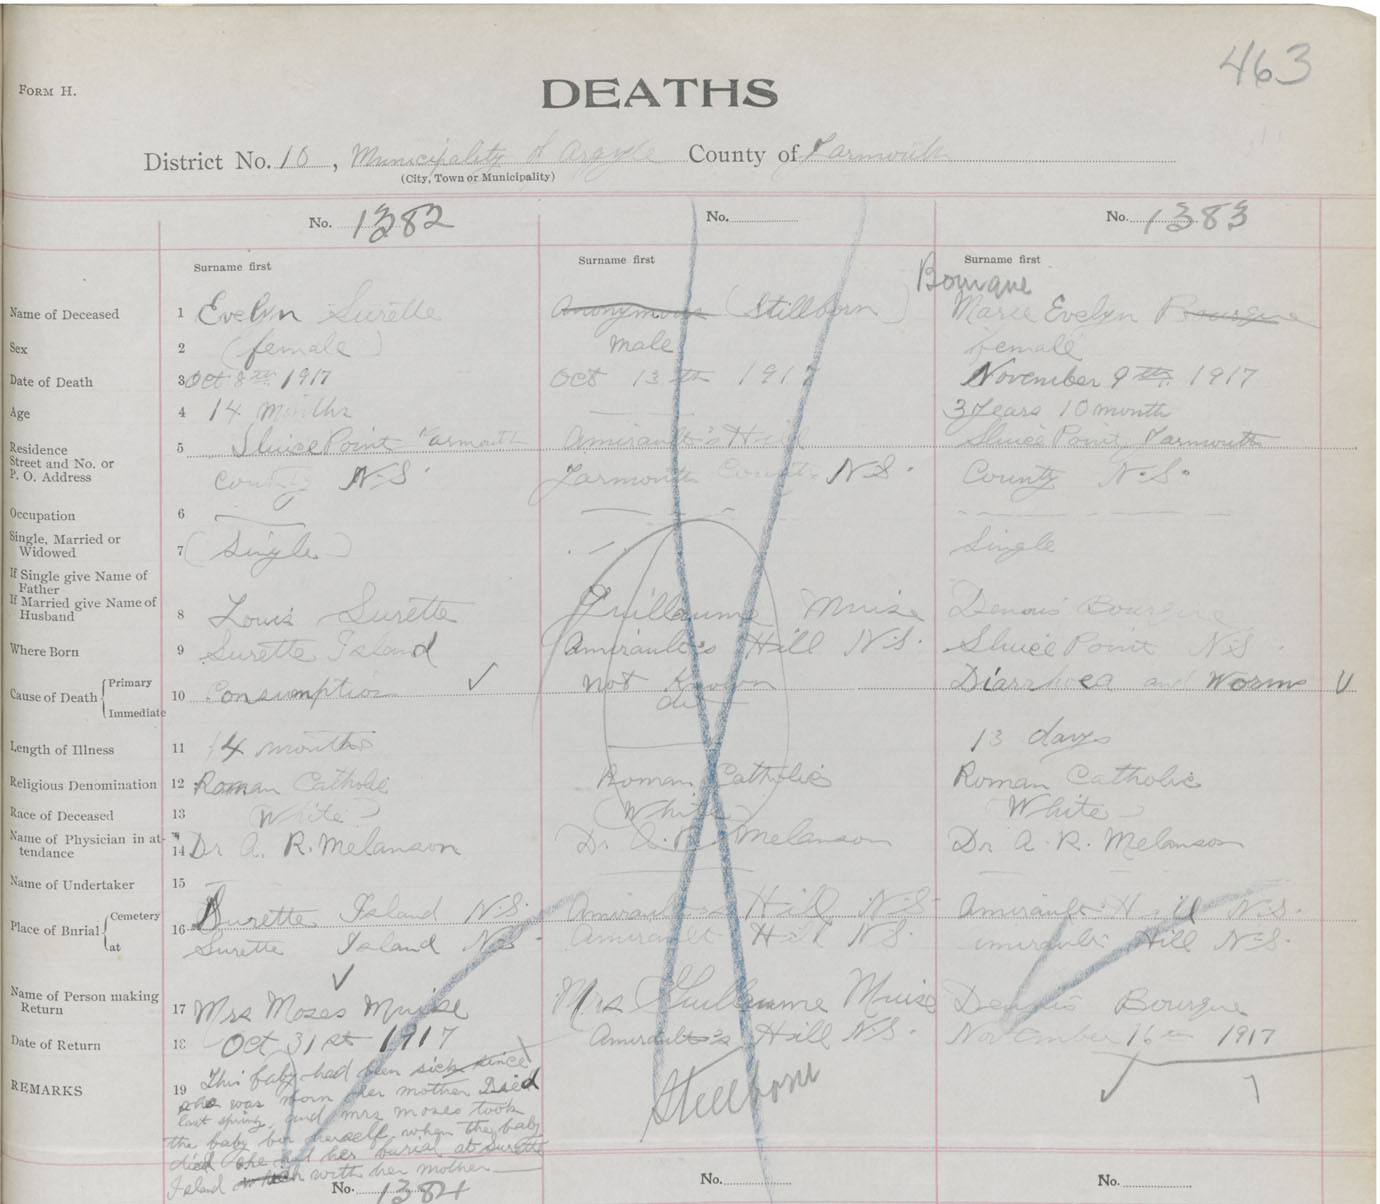 463
FORM H.
DEATHS
District No. 10, Municipality of Argyle County of Yarmouth
(City, Town or Municipality)
No. 1382
No.
No. 1383
Surname first
Surname first
Surname first
Bourque
Name of Deceased 1 Evelyn Surette Anonymous (Stillborn) Marie Evelyn Bourque
Sex 2 (female) male female
Date of Death 3 Oct 8th 1917 Oct 13th 1917 November 9th 1917
Age 4 14 months 3 years 10 month
Residence 5 Sluice Point Yarmouth Amirault's Hill Sluice Point, Yarmouth
Street and No. or
P. O. Address County N.S. Yarmouth County N.S. County N.S.
Occupation 6
Single, Married or
Widowed 7 (Single) Single
If Single give Name of
Father
If Married give Name of
Husband 8 Louis Surette Guillaume Muise Dennis Bourque
Where Born 9 Surette Island Amirault's Hill N.S. Sluice Point N.S.
Cause of Death Primary 10 Consumption ✓ not Known Diarrhoea and Worms
Immediate
Length of Illness 11 14 months 13 days
Religious Denomination 12 Roman Catholic Roman Catholic Roman Catholic
Race of Deceased 13 White (White White
Name of Physician in at-
tendance 14 Dr A. R. Melanson Dr A. R. Melanson Dr A. R. Melanson
Name of Undertaker 15
Place of Burial Cemetery 16 Surette Island N.S. Amirault's Hill N.S. Amirault Hill N.S.
at Surette Island N.S. Amirault Hill N.S. Amirault Hill N.S.
Name of Person making
Return 17 Mrs Moses Muise Mrs Guillaume Muise Dennis Bourque
Date of Return 18 Oct 31st 1917 Amirault's Hill N.S. November 16th 1917
REMARKS 19 This baby had been sick since
she was born her mother Died
last spring, and mrs moses took
the baby for herself, when the baby
died she had her burial at Surette
Island with her mother
Stillborn
No. 1384
No.
No.